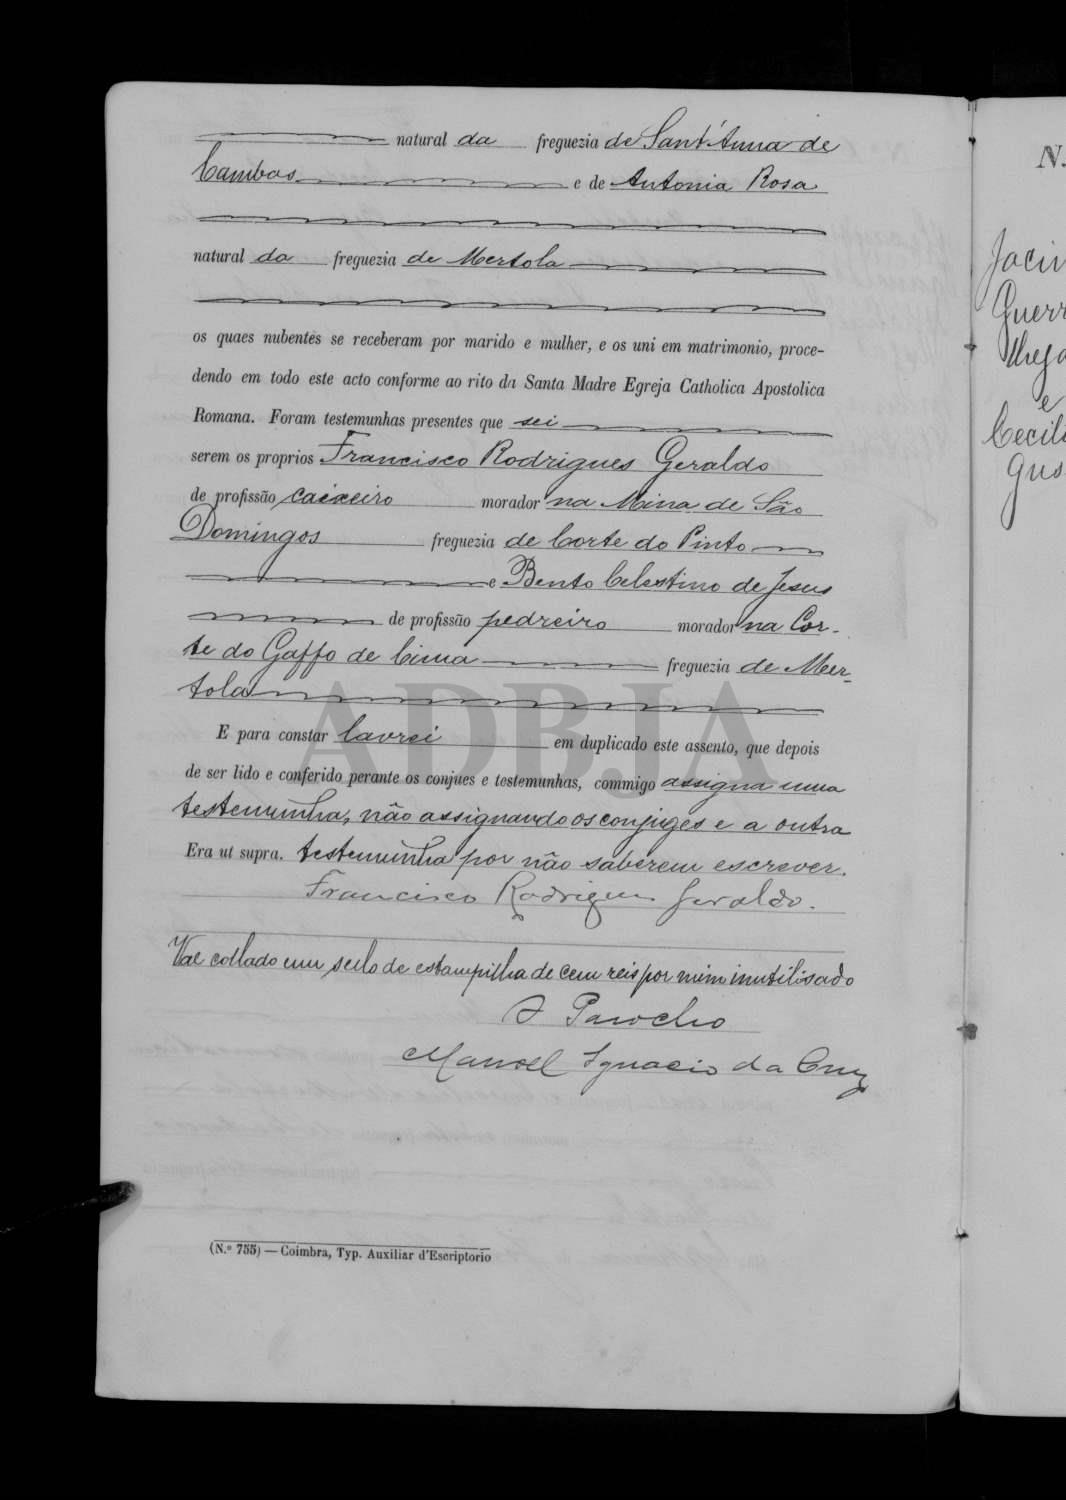 natural da freguezia de Sant'Anna de
Cambas e de Antonia Rosa
natural da freguezia de Mertola
os quaes nubentes se receberam por marido e mulher, e os uni em matrimonio, proce-
dendo em todo este acto conforme ao rito da Santa Madre Egreja Catholica Apostolica
Romana. Foram testemunhas presentes que sei
serem os proprios Francisco Rodrigues Geraldo
de profissão caixeiro morador na Mina de São
Domingos freguezia de Corte do Pinto
e Bento Celestino de Jesus
de profissão pedreiro morador na Cor-
te do Gaffo de Cima freguezia de Mer-
tola
E para constar lavrei em duplicado este assento, que depois
de ser lido e conferido perante os conjues e testemunhas, commigo assigna uma
testemunha, não assignando os conjuges e a outra
Era ut supra. testemunha por não saberem escrever.
Francisco Rodrigues Geraldo.
Vae collado um sello de estampilha de cem reis por mim inutilisado
O Parocho
Manoel Ignacio da Cruz
(N.º 755) — Coimbra, Typ. Auxiliar d'Escriptorio
ADBJA
N.
Jacin
Guerr
e
Cecili